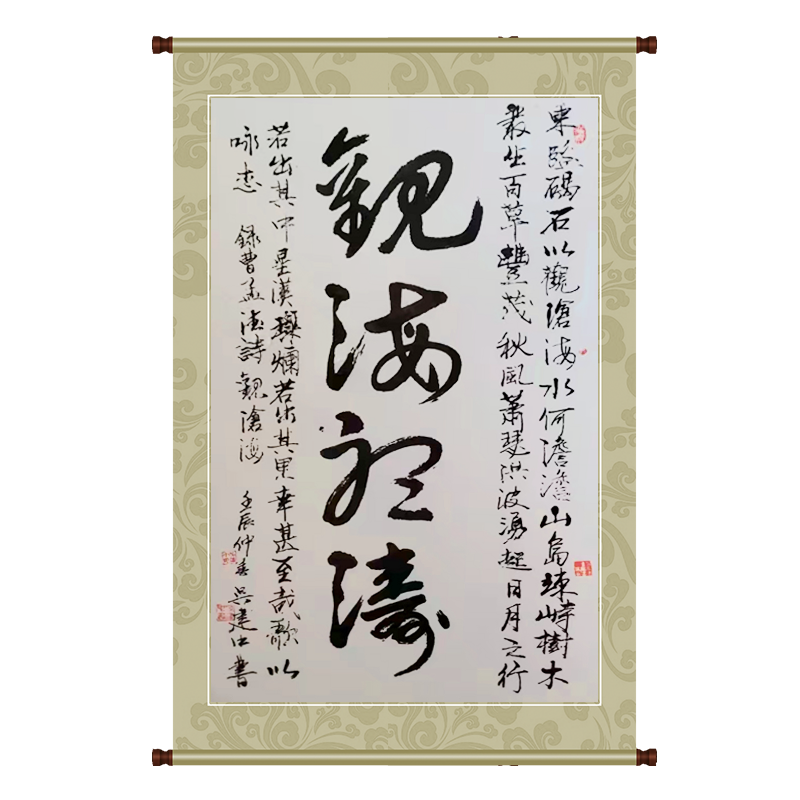 東臨碣石以觀滄海水何澹澹山島竦峙樹木
叢生百草豐茂秋風蕭瑟洪波湧起日月之行
觀海聽濤
若出其中星漢燦爛若出其里幸甚至哉歌以
詠志 錄曹孟德詩觀滄海 壬辰仲春吳建中書